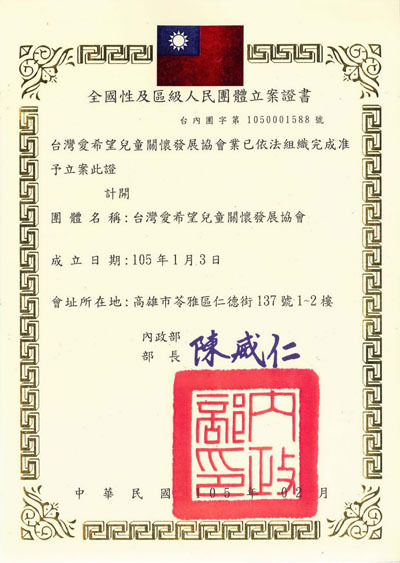 全國性及區級人民團體立案證書
台內團字第 1050001588 號
台灣愛希望兒童關懷發展協會業已依法組織完成准
予立案此證
計開
團體名稱:台灣愛希望兒童關懷發展協會
成立日期:105年1月3日
會址所在地:高雄市苓雅區仁德街137號1~2樓
內政部
部長 陳威仁
內政部印
中華民國 105 年 02 月